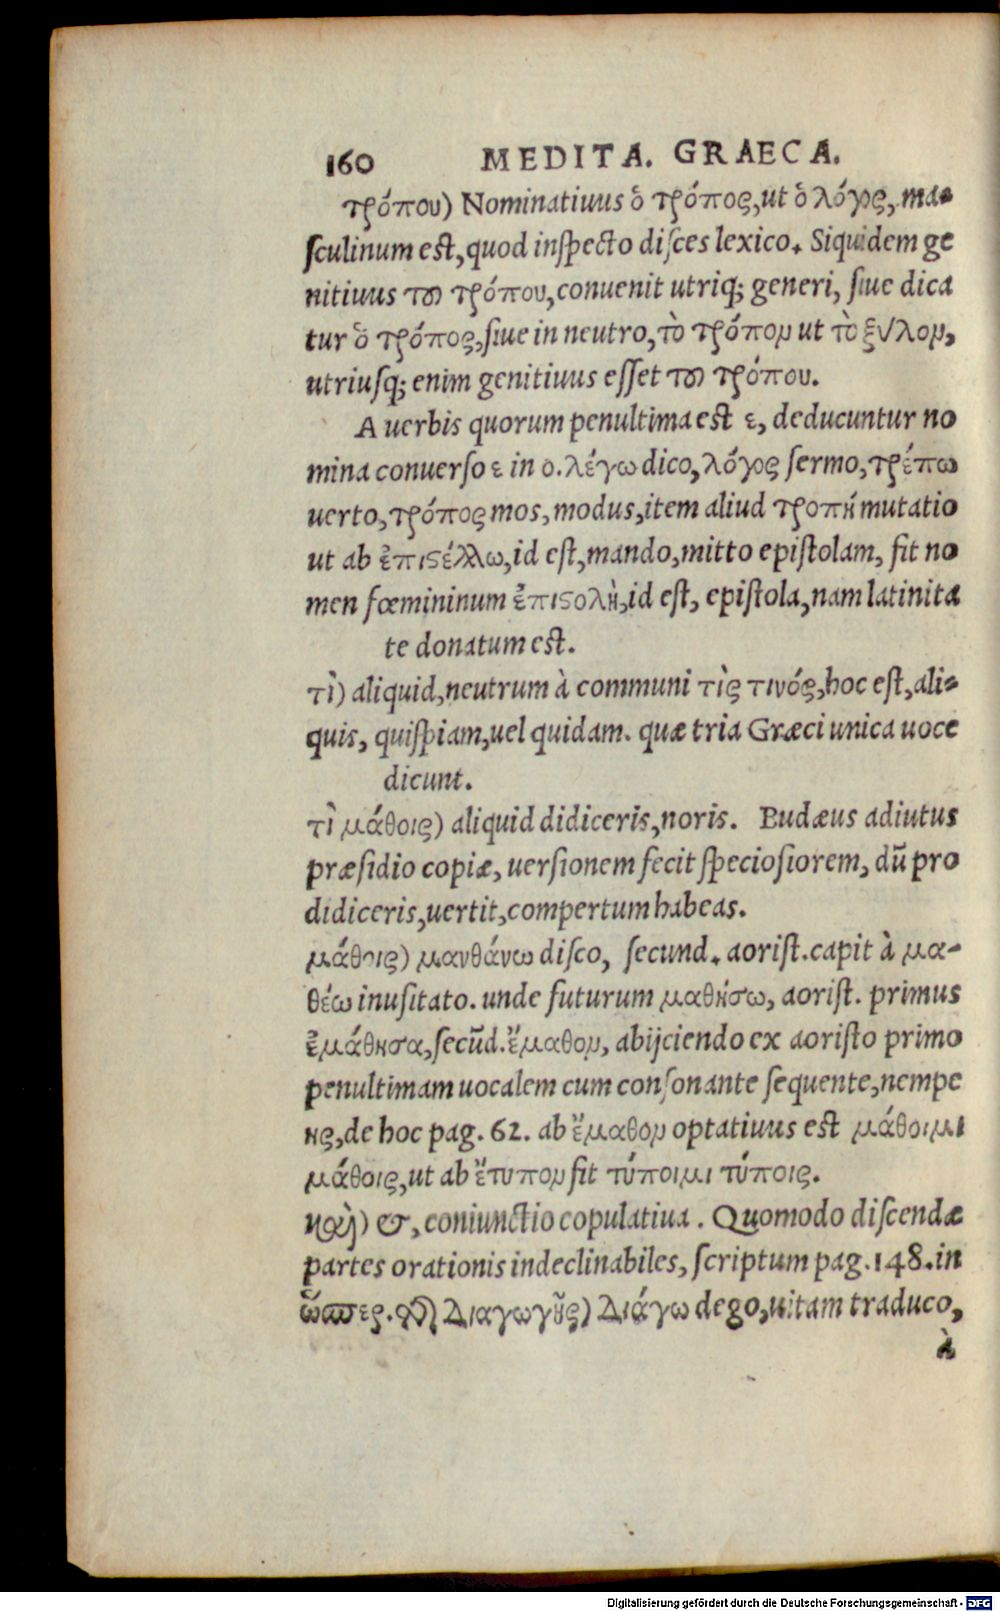 160 MEDITA. GRAECA.
τρόπου) Nominatiuus ὁ τρόπος, ut ὁ λόγος, ma-
sculinum est, quod inspecto disces lexico. Siquidem ge
nitiuus τοῦ τρόπου, conuenit utriq; generi, siue dica
tur ὁ τρόπος, siue in neutro, τὸ τρόπον ut τὸ ξύλον,
utriusq; enim genitiuus esset τοῦ τρόπου.
A uerbis quorum penultima est ε, deducuntur no
mina conuerso ε in ο. λέγω dico, λόγος sermo, τρέπω
uerto, τρόπος mos, modus, item aliud τροπή mutatio
ut ab ἐπιστέλλω, id est, mando, mitto epistolam, fit no
men fœmininum ἐπιστολὴ, id est, epistola, nam latinita
te donatum est.
τὶ) aliquid, neutrum à communi τὶς τινός, hoc est, ali-
quis, quispiam, uel quidam. quæ tria Græci unica uoce
dicunt.
τὶ μάθοις) aliquid didiceris, noris. Budæus adiutus
præsidio copiæ, uersionem fecit speciosiorem, dū pro
didiceris, uertit, compertum habeas.
μάθοις) μανθάνω disco, secund. aorist. capit à μα-
θέω inusitato. unde futurum μαθήσω, aorist. primus
ἐμάθησα, secūd. ἔμαθον, abijciendo ex aoristo primo
penultimam uocalem cum consonante sequente, nempe
ης, de hoc pag. 62. ab ἔμαθον optatiuus est μάθοιμι
μάθοις, ut ab ἔτυπον fit τύποιμι τύποις.
καὶ) &, coniunctio copulatiua. Quomodo discendæ
partes orationis indeclinabiles, scriptum pag. 148. in
ὥσπερ. διαγωγῆς) διάγω dego, uitam traduco,
à
Digitalisierung gefördert durch die Deutsche Forschungsgemeinschaft - DFG